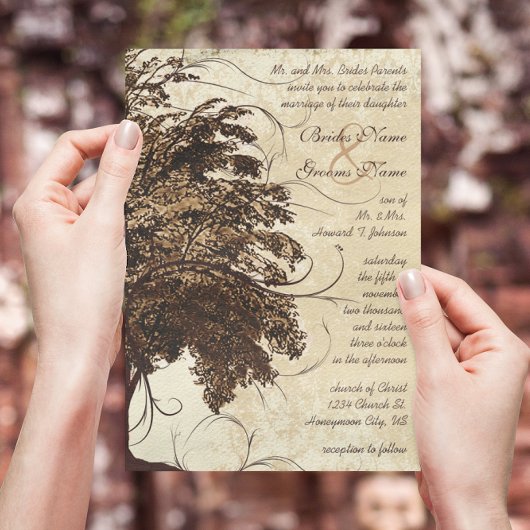 Mr. and Mrs. Brides Parents
invite you to celebrate the
marriage of their daughter
Brides Name
&
Grooms Name
son of
Mr. & Mrs.
Howard T. Johnson
saturday
the fifth of
november
two thousand
and sixteen
three o'clock
in the afternoon
church of Christ
1234 Church St.
Honeymoon City, US
reception to follow